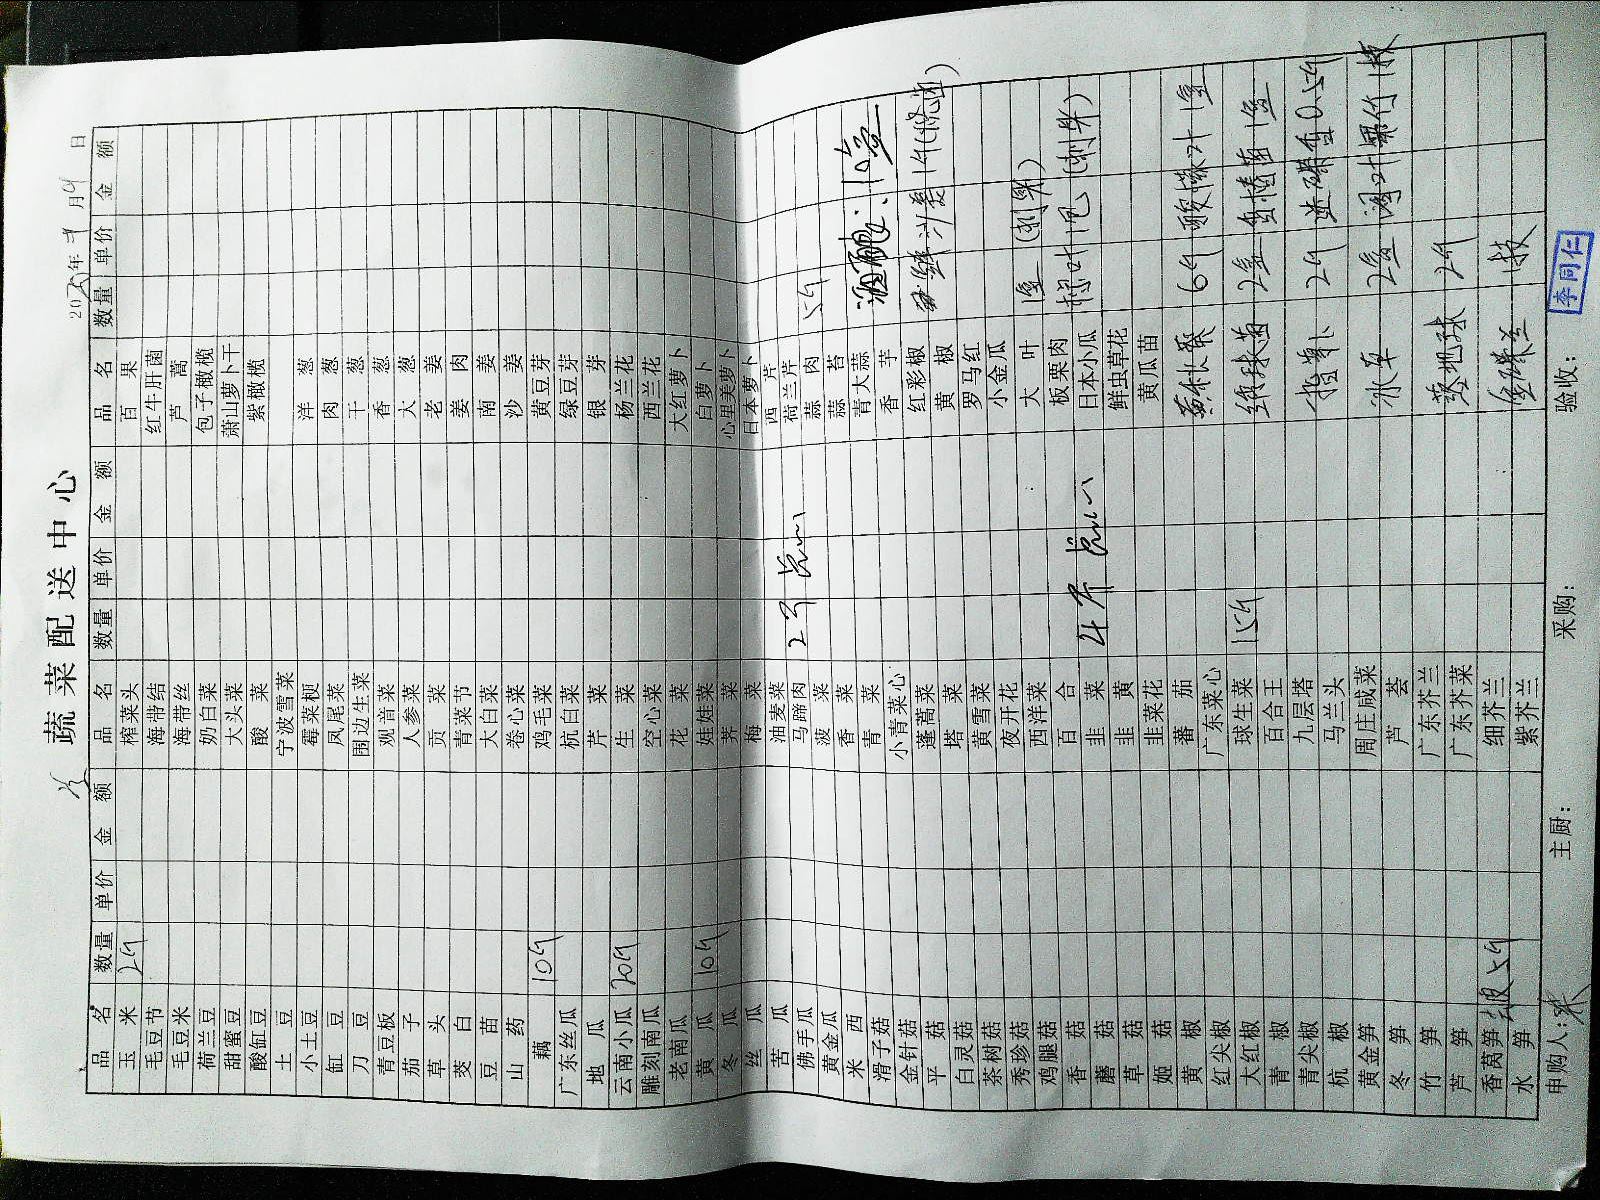 蔬菜配送中心
年 月 日
品名 数量 单价 金额 品名 数量 单价 金额 品名 数量 单价 金额
玉米 2斤 榨菜头 百果
毛豆节 海带结 红牛肝菌
毛豆米 海带丝 芦蒿
荷兰豆 奶白菜 包子橄榄
甜蜜豆 大头菜 萧山萝卜干
酸缸豆 酸菜 紫橄榄
土豆 宁波雪菜
小土豆 霉菜梗 洋葱
缸豆 凤尾菜 肉葱
刀豆 围边生菜 干葱
青豆板 观音菜 香葱
茄子 人参菜 大葱
草头 贡菜 老姜
茭白 青菜节 姜肉
豆苗 大白菜 南姜
山药 卷心菜 沙姜
藕 10斤 鸡毛菜 黄豆芽
广东丝瓜 杭白菜 绿豆芽
地瓜 芹菜 银芽
云南小瓜 20斤 生菜 杨兰花
雕刻南瓜 空心菜 西兰花
老南瓜 花菜 大红萝卜
黄瓜 10斤 娃娃菜 白萝卜
冬瓜 荠菜 心里美萝卜
丝瓜 梅菜 日本萝卜
苦瓜 油麦菜 西芹
佛手瓜 马蹄肉 2斤 荷兰芹
黄金瓜 菠菜 蒜肉 5斤
米西 香菜 蒜苔
滑子菇 青菜 青大蒜 10盒
金针菇 小青菜心 香芋
平菇 蓬蒿菜 红彩椒
白灵菇 塔菜 黄椒
茶树菇 黄雪菜 罗马红
秀珍菇 夜开花 小金瓜
鸡腿菇 西洋菜 大叶 1盒
香菇 百合 板栗肉
蘑菇 韭菜 4斤 日本小瓜
草菇 韭黄 鲜虫草花
姬菇 韭菜花 黄瓜苗
黄椒 蕃茄 黄秋葵 6斤 酸橡叶 1盒
红尖椒 广东菜心
大红椒 球生菜 15斤 2盒 1盒
青椒 百合王
青尖椒 九层塔 2斤 0.5斤
杭椒 马兰头
黄金笋 周庄咸菜 冰草 2盒
冬笋 芦荟
竹笋 广东芥兰
芦笋 广东芥菜 2斤
香莴笋 5斤 细芥兰
水笋 紫芥兰
申购人: 主厨: 采购: 验收:
李同仁